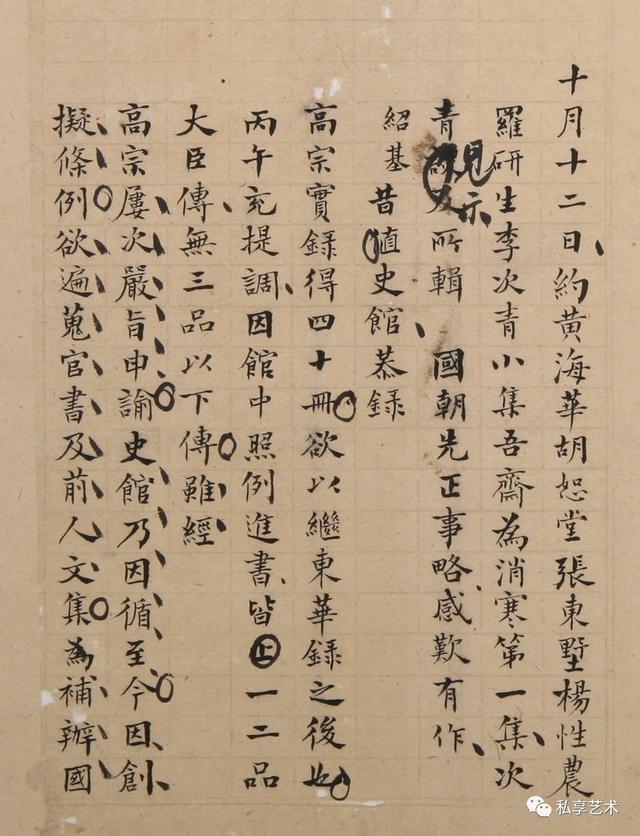 十月十二日約黄海華胡恕堂張東墅楊性農
羅研生李次青小集吾齋為消寒第一集次
青見示所輯 國朝先正事略感歎有作
紹基昔直史館恭錄
高宗實録得四十冊欲以繼東華録之後也
丙午充提調因館中照例進書皆止一二品
大臣傳無三品以下傳雖經
高宗屢次嚴旨申諭史館乃因循至今因創
擬條例欲遍蒐官書及前人文集為補辦國
私享艺术